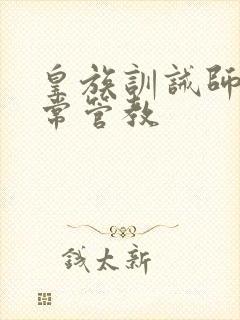 皇族訓誡師
常管教
錢太新